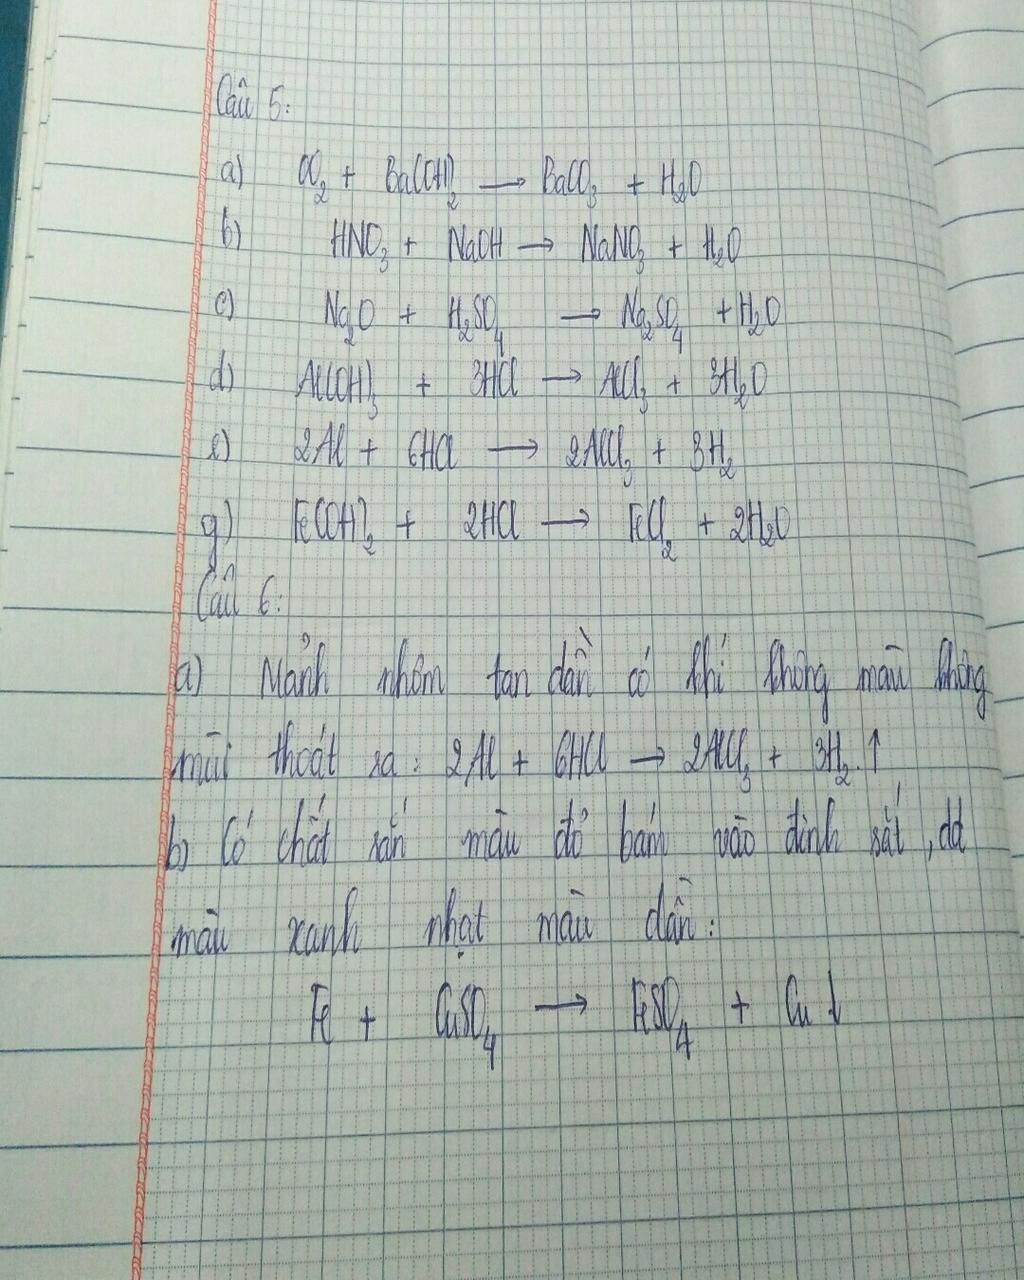 Câu 5:
a) CO₂ + Ba(OH)₂ → BaCO₃ + H₂O
b) HNO₃ + NaOH → NaNO₃ + H₂O
c) Na₂O + H₂SO₄ → Na₂SO₄ + H₂O
d) Al(OH)₃ + 3HCl → AlCl₃ + 3H₂O
e) 2Al + 6HCl → 2AlCl₃ + 3H₂
g) Fe(OH)₂ + 2HCl → FeCl₂ + 2H₂O
Câu 6:
a) Mảnh nhôm tan dần có khí không màu không
mùi thoát ra: 2Al + 6HCl → 2AlCl₃ + 3H₂ ↑
b) Có chất rắn màu đỏ bám vào đinh sắt, dd
màu xanh nhạt màu dần:
Fe + CuSO₄ → FeSO₄ + Cu ↓